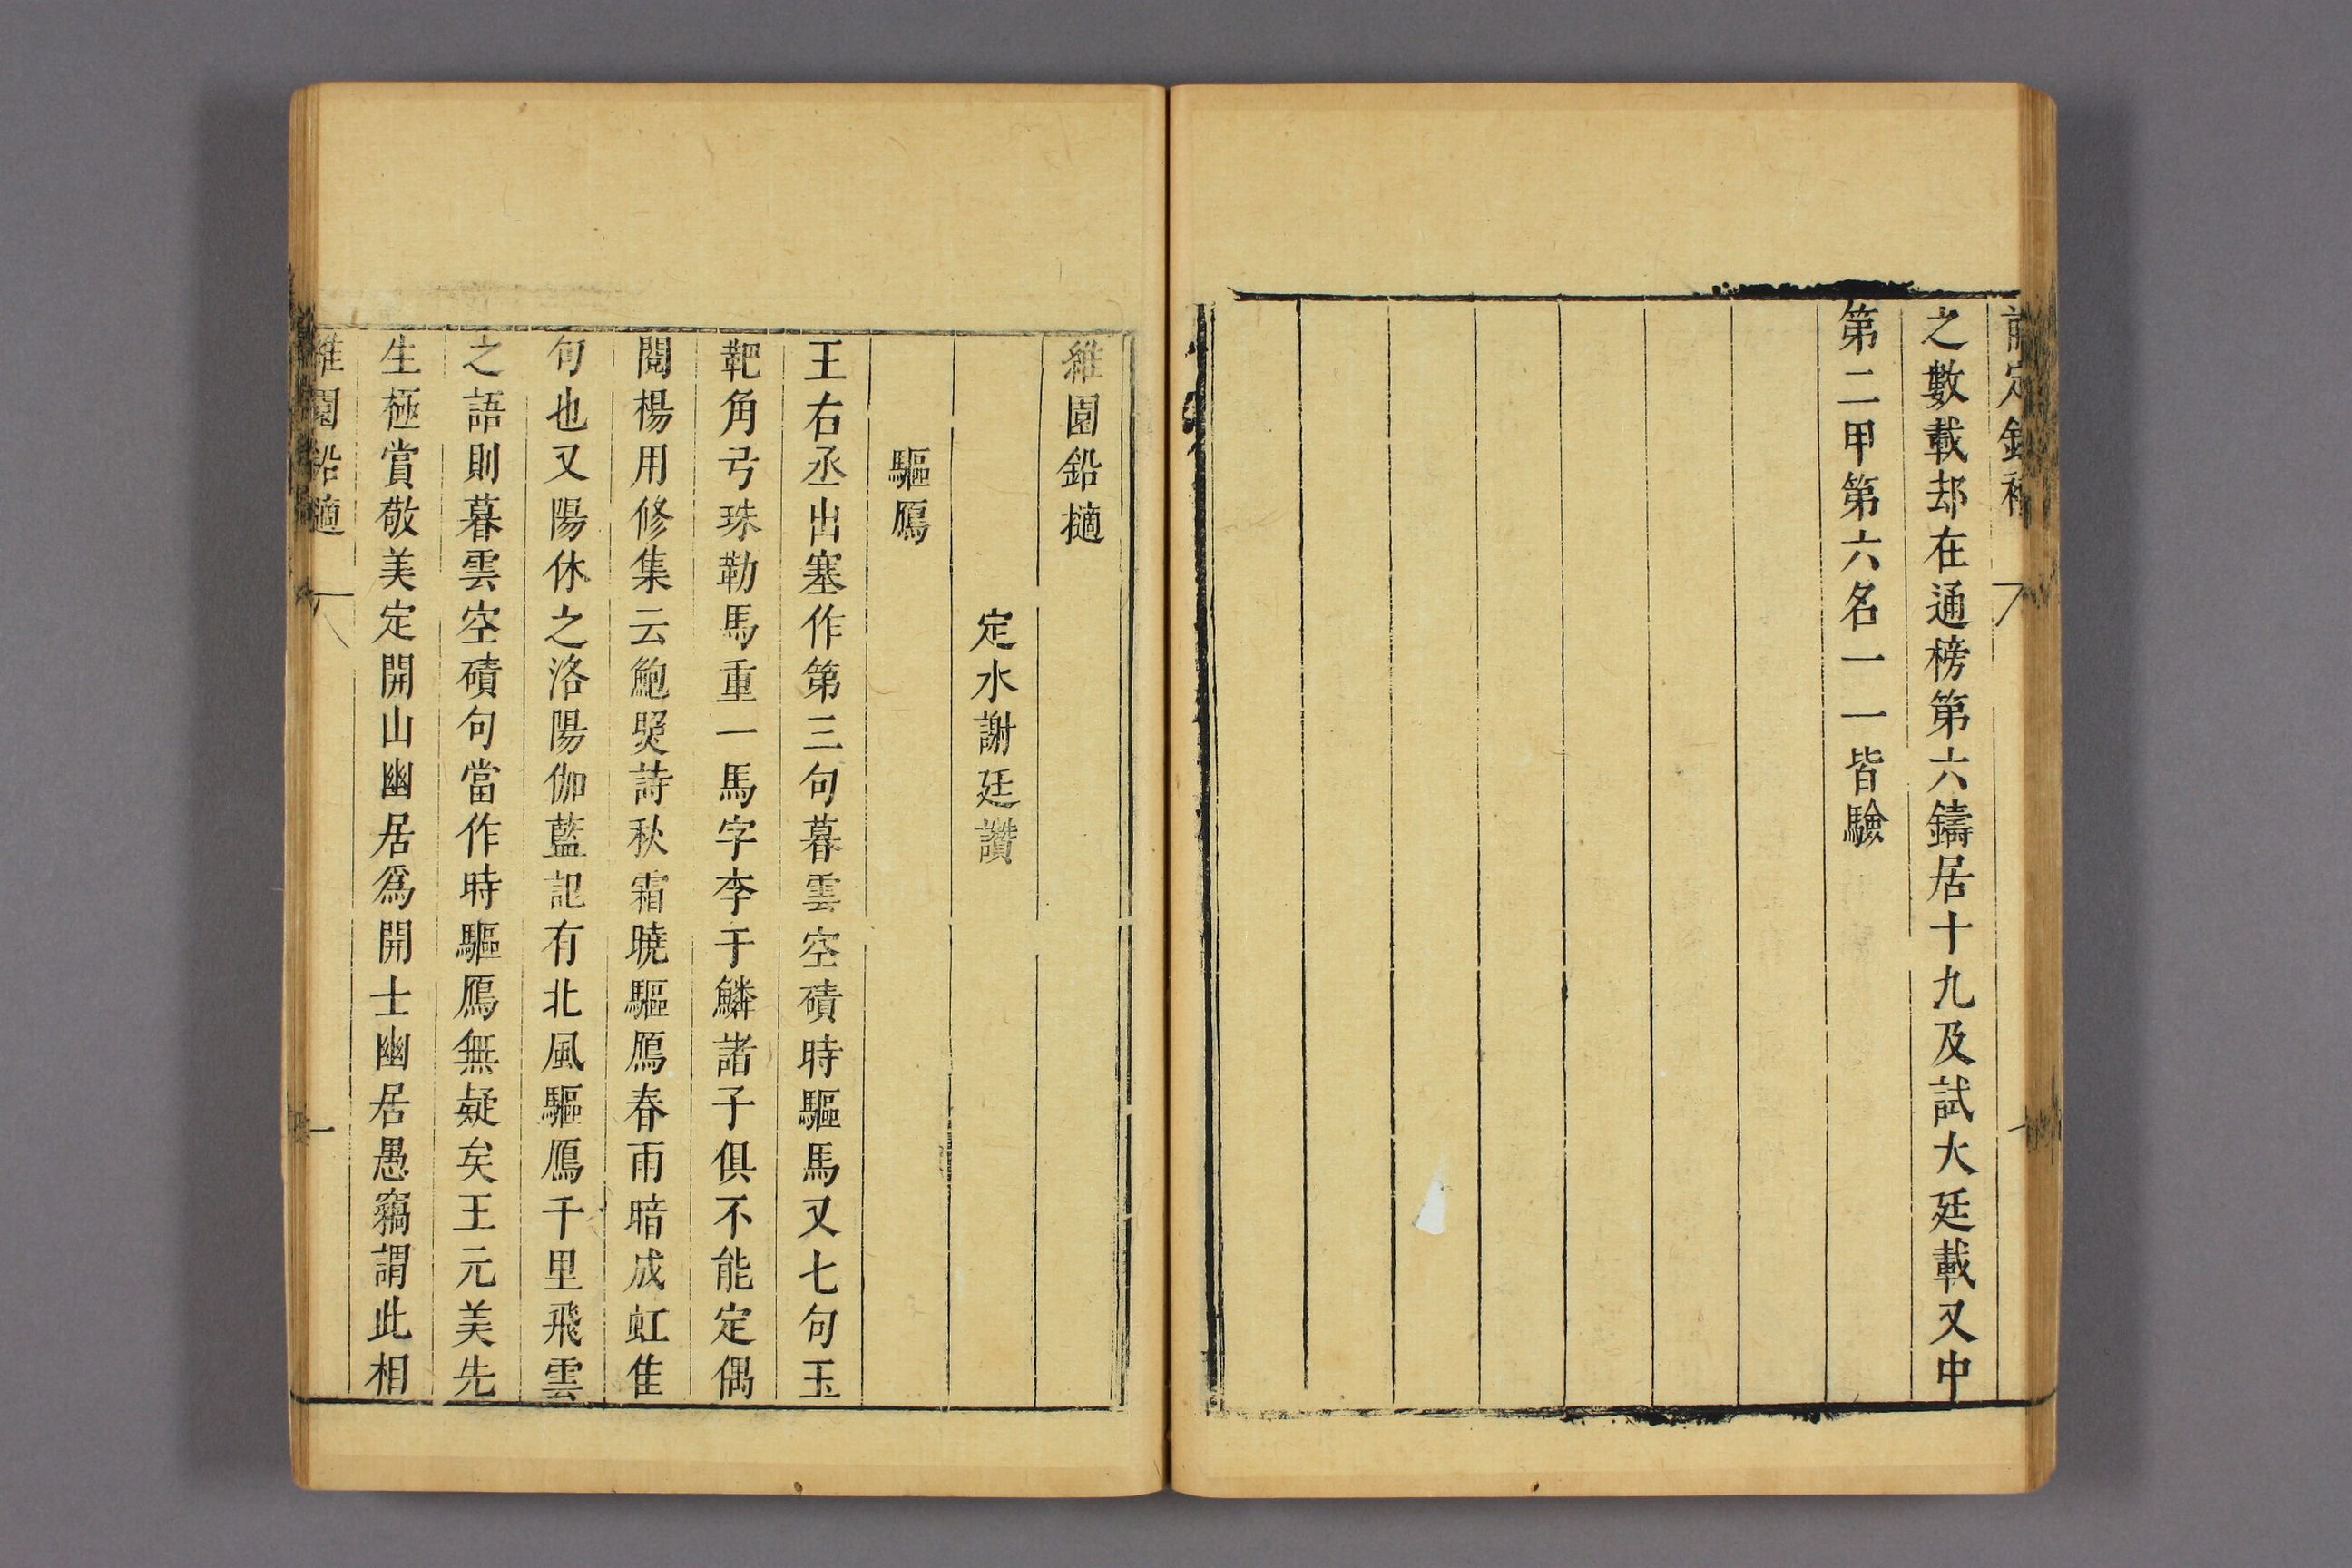 前定錄補
之數載却在通榜第六鑄居十九及試大廷載又中
第二甲第六名一一皆驗
維園鉛擿
定水謝廷讚
驅鴈
王右丞出塞作第三句暮雲空磧時驅馬又七句玉
靶角弓珠勒馬重一馬字李于鱗諸子俱不能定偶
閱楊用修集云鮑照詩秋霜曉驅鴈春雨暗成虹隹
句也又陽休之洛陽伽藍記有北風驅鴈千里飛雲
之語則暮雲空磧句當作時驅鴈無疑矣王元美先
生極賞敬美定開山幽居爲開士幽居愚竊謂此相
維園鉛擿
一